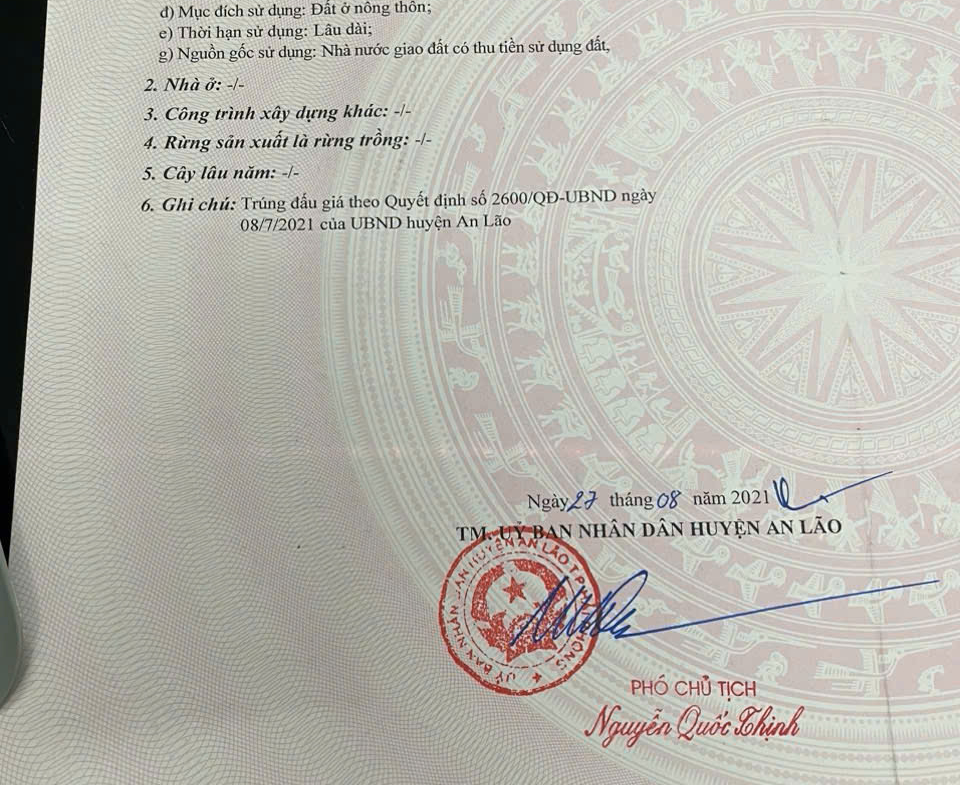 đ) Mục đích sử dụng: Đất ở nông thôn;
e) Thời hạn sử dụng: Lâu dài;
g) Nguồn gốc sử dụng: Nhà nước giao đất có thu tiền sử dụng đất,
2. Nhà ở: -/-
3. Công trình xây dựng khác: -/-
4. Rừng sản xuất là rừng trồng: -/-
5. Cây lâu năm: -/-
6. Ghi chú: Trúng đấu giá theo Quyết định số 2600/QĐ-UBND ngày
08/7/2021 của UBND huyện An Lão
Ngày 27 tháng 08 năm 2021
TM. UỶ BAN NHÂN DÂN HUYỆN AN LÃO
UỶ BAN NHÂN DÂN HUYỆN AN LÃO T.P HẢI PHÒNG
PHÓ CHỦ TỊCH
Nguyễn Quốc Thịnh